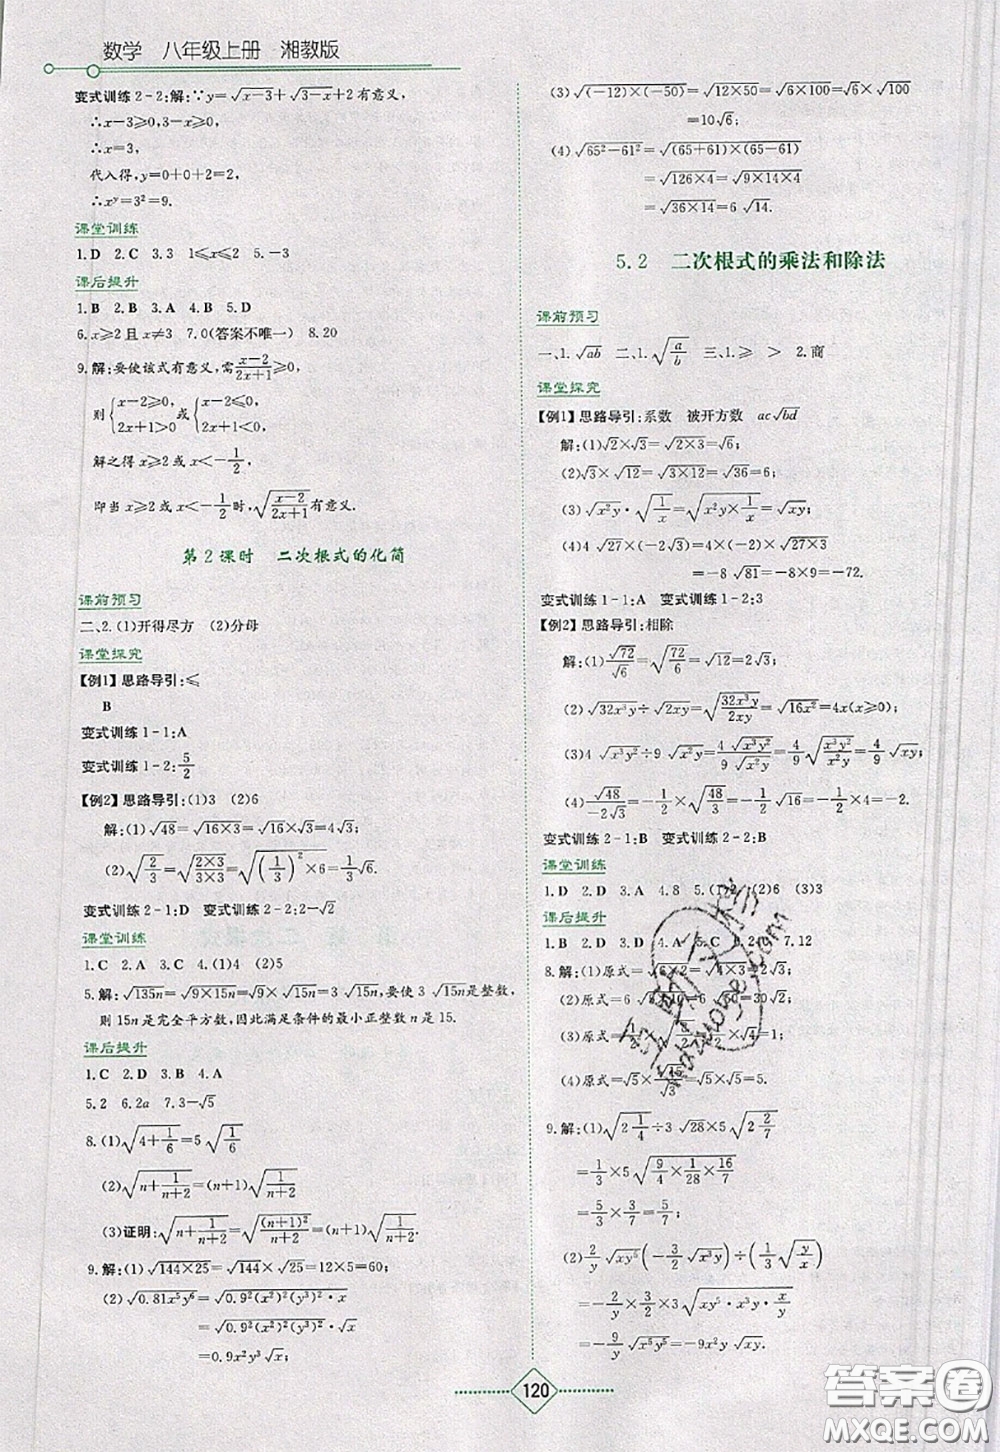 数学 八年级上册 湘教版
变式训练2-2:解:∵y=√(x-3)+√(3-x)+2有意义,
∴x-3≥0,3-x≥0,
∴x=3,
代入得,y=0+0+2=2,
∴x^y=3²=9.
课堂训练
1.D 2.C 3.3 4.1≤x≤2 5.-3
课后提升
1.B 2.B 3.A 4.B 5.D
6.x≥2且x≠3 7.0(答案不唯一) 8.20
9.解:要使该式有意义,需(x-2)/(2x+1)≥0,
则{x-2≥0 2x+1>0 或{x-2≤0 2x+1<0,
解之得x≥2或x<-1/2,
即当x≥2或x<-1/2时,√((x-2)/(2x+1))有意义.
第2课时 二次根式的化简
课前预习
二、2.(1)开得尽方 (2)分母
课堂探究
【例1】思路导引:≤
B
变式训练1-1:A
变式训练1-2:5/2
【例2】思路导引:(1)3 (2)6
解:(1)√48=√(16×3)=√16×√3=4√3;
(2)√(2/3)=√((2×3)/(3×3))=√((1/3)²×6)=1/3√6.
变式训练2-1:D 变式训练2-2:2-√2
课堂训练
1.C 2.A 3.C 4.(1)4 (2)5
5.解:√(135n)=√(9×15n)=√9×√(15n)=3√(15n),要使3√(15n)是整数,
则15n是完全平方数,因此满足条件的最小正整数n是15.
课后提升
1.C 2.D 3.B 4.A
5.2 6.2a 7.3-√5
8.(1)√(4+1/6)=5√(1/6)
(2)√(n+1/(n+2))=(n+1)√(1/(n+2))
(3)证明:√(n+1/(n+2))=√((n+1)²/(n+2))=(n+1)√(1/(n+2)).
9.解:(1)√(144×25)=√144×√25=12×5=60;
(2)√(0.81x⁵y⁶)=√(0.9²(x²)²(y³)²·x)
=√(0.9²(x²)²(y³)²)·√x
=0.9x²y³√x;
(3)√((-12)×(-50))=√(12×50)=√(6×100)=√6×√100
=10√6;
(4)√(65²-61²)=√((65+61)×(65-61))
=√(126×4)=√(9×14×4)
=√(36×14)=6√14.
5.2 二次根式的乘法和除法
课前预习
一、1.√(ab) 二、1.√(a/b) 三、1.≥ > 2.商
课堂探究
【例1】思路导引:系数 被开方数 ac√(bd)
解:(1)√2×√3=√(2×3)=√6;
(2)√3×√12=√(3×12)=√36=6;
(3)√(x²y)·√(1/x)=√(x²y×1/x)=√(xy);
(4)4√27×(-2√3)=4×(-2)×√(27×3)
=-8√81=-8×9=-72.
变式训练1-1:A 变式训练1-2:3
【例2】思路导引:相除
解:(1)√72/√6=√(72/6)=√12=2√3;
(2)√(32x³y)÷√(2xy)=√(32x³y/2xy)=√(16x²)=4x(x≥0);
(3)4√(x³y²)÷9√(x²y)=4/9√(x³y²)/√(x²y)=4/9√(x³y²/x²y)=4/9√(xy);
(4)√48/(-2√3)=-1/2×√(48/3)=-1/2×√16=-1/2×4=-2.
变式训练2-1:B 变式训练2-2:B
课堂训练
1.D 2.D 3.A 4.8 5.(1)2 (2)6 (3)3
课后提升
1.B 2.C 3.D 4.A 5.C 7.12
8.解:(1)原式=√(6×2)=√(4×3)=2√3.
(2)原式=6 =30√2;
9.解:(1)√(2 1/4)÷3√28×5√(2 2/7)
=1/3×5√(9/4×1/28×16/7)
=5/3×3/7=5/7;
(2)2/y√(xy⁵)·(-3/2√(x³y))÷(1/3√(y/x))
=-2/y×3/2×3√(xy⁵·x³y·x/y)
=-9/y√(x⁵y⁵)=-9x²y√(xy).
120
答案圈
MXQE.COM